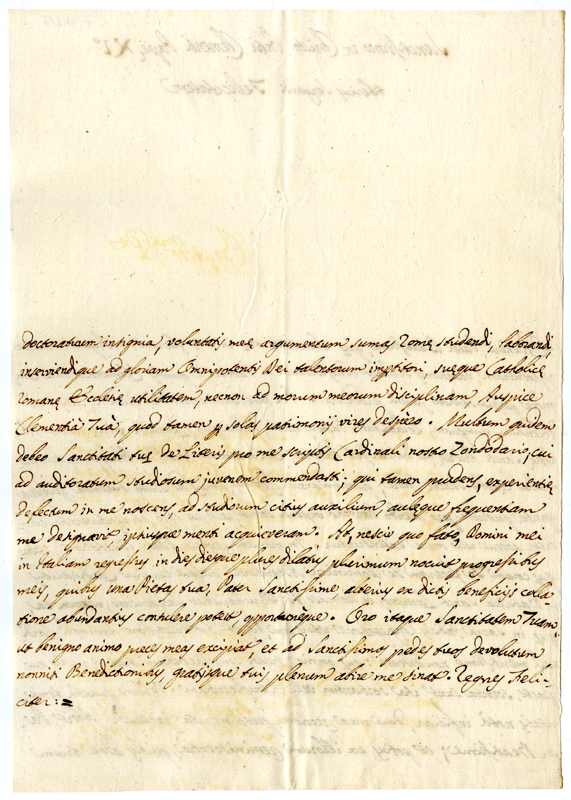 doctoratuum insignia, voluntatis meę argumentum sumas Romę studendi, laborandi,
inserviendique ad gloriam Omnipotentis Dei talentorum
suęque Catholicę
Romanę Ecclesię utilitatem, necnon ad morum meorum disciplinam, Auspice
Clementia Tuâ, quod tamen ꝑ solas patrimonij vires despero. Multum quidem
debeo Sanctitati tuę de Literis pro me scriptis Cardinali nostro Zondodario, cui
ad auditoratum studiosum juvenem commendasti; qui tamen prudens, experientię
defectum in me noscens, ad studiorum citius auxilium, aulęque frequentiam
me destinavit, ipsiusque menti acquieveram. At, nescio quo fato, Domini mei
in Italiam regressus in dies diesque plures dilatus plurimum nocuit progressibus
meis, quibus una Pietas tua, Pater Sanctissime alterius ex dictis beneficijs colla-
tione abundantius consulere potest, opportuneque. Oro itaque Sanctitatem Tuam,
ut benigno animo preces meas excipiat, et ad Sanctissimos pedes tuos devolutum
nonnisi Benedictionibus, gratijsque tuis plenum abire me sinat. Regnes Feli-
citer:=